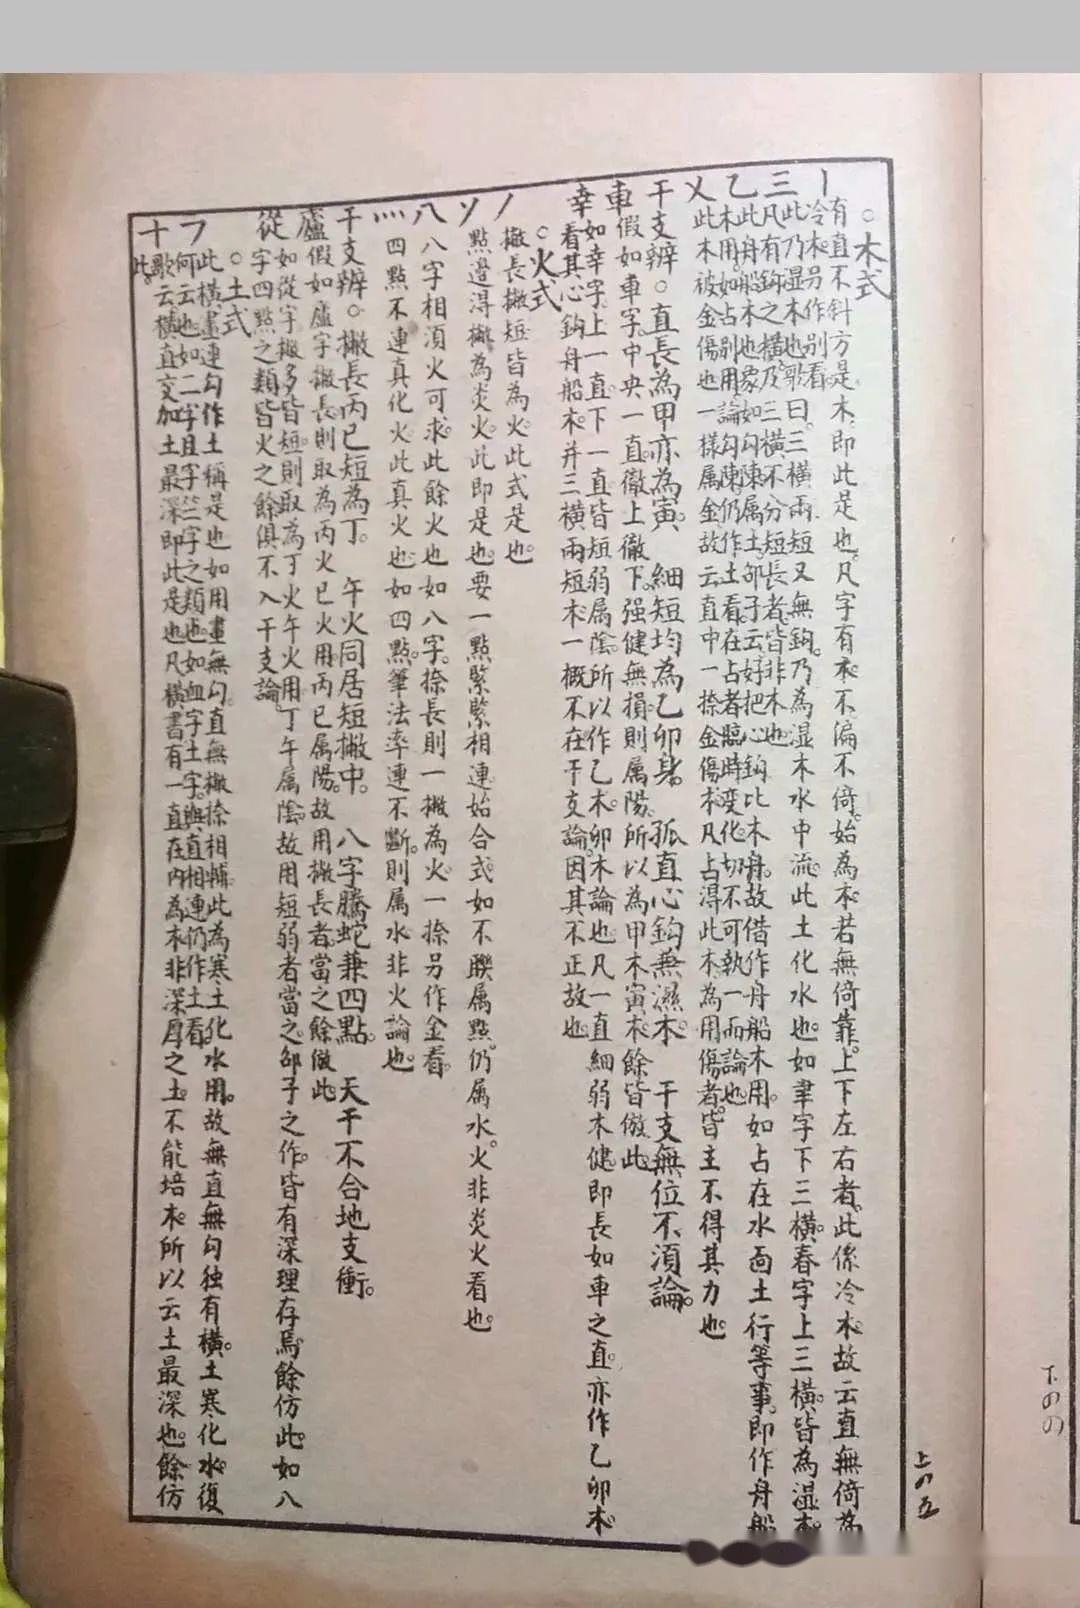 ○木式
丨 有直不斜方是木即此是也凡字有木不偏不倚始為木若無倚靠上下左右者此係冷木故云直無倚為
冷木另作別看
三 此乃湿木也歌曰三橫兩短又無鈎乃為湿木水中流此土化水也如聿字下三橫春字上三橫皆為湿木
凡有鈎之橫及三橫不分短長者皆非木也
乙 此舟船木也象如勾陳属土邵子云好把心鈎比木舟故借作舟船木用如占在水面土行等事即作舟船
木用如占別用論勾陳仍作土看在占者臨時变化切不可執一而論也
乂 此木被金傷也一樣属金故云直中一捺金傷木凡占得此木為用傷者皆主不得其力也
干支辨○直長為甲亦為寅 細短均為乙卯身 孤直心鈎兼濕木 干支無位不湏論
車 假如車字中央一直徹上徹下强健無損則属陽所以為甲木寅木餘皆倣此
幸 如幸字上一直下一直皆短弱属陰所以作乙木卯木論也凡一直細弱木健即長如車之直亦作乙卯木
看其心鈎舟船木并三橫兩短木一概不在干支論因其不正故也
○火式
丿 撇長撇短皆為火此式是也
ソ 點邉得撇為炎火此即是也要一點緊緊相連始合式如不聮属點仍属水火非炎火看也
八 八字相湏火可求此餘火也如八字捺長則一撇為火一捺另作金看
灬 四點不連真化火此真火也如四點筆法率連不斷則属水非火論也
干支辨○撇長丙已短為丁 午火同居短撇中 八字騰蛇兼四點 天干不合地支衝
廬 假如廬字撇長則取為丙火已火用丙已属陽故用撇長者當之餘倣此
從 如從字撇多皆短則取為丁火午火用丁午属陰故用短弱者當之邵子之作皆有深理存焉餘仿此如八
字四點之類皆火之餘俱不入干支論
○土式
𠃍 此橫畫連勾作土稱是也如用畫無勾直無撇捺相輔此為寒土化水用故無直無勾独有橫土寒化水復
何云也如二字且字竺字之類也如血字土字與直相連仍作土看
十 歌云橫直交加土最深即此是也凡橫書有一直在內為木非深厚之土不能培木所以云土最深也餘仿
此
上の五
下のの